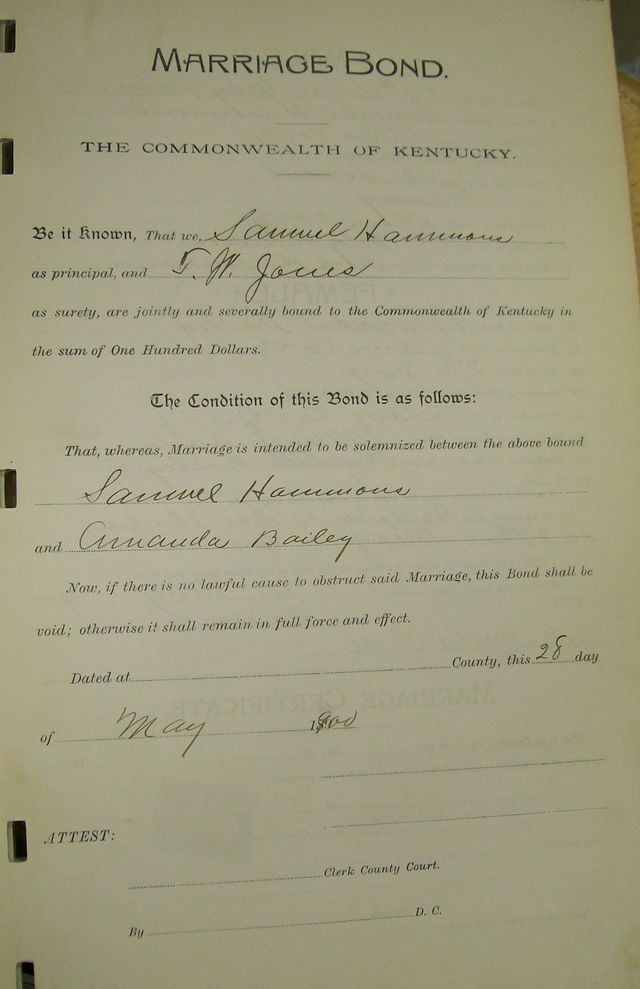 MARRIAGE BOND.
THE COMMONWEALTH OF KENTUCKY.
Be it Known, That we, Samuel Hammons
as principal, and T. W. Jones
as surety, are jointly and severally bound to the Commonwealth of Kentucky in
the sum of One Hundred Dollars.
The Condition of this Bond is as follows:
That, whereas, Marriage is intended to be solemnized between the above bound
Samuel Hammons
and Amanda Bailey
Now, if there is no lawful cause to obstruct said Marriage, this Bond shall be
void; otherwise it shall remain in full force and effect.
Dated at County, this 28 day
of May 1900
ATTEST:
Clerk County Court.
By D. C.